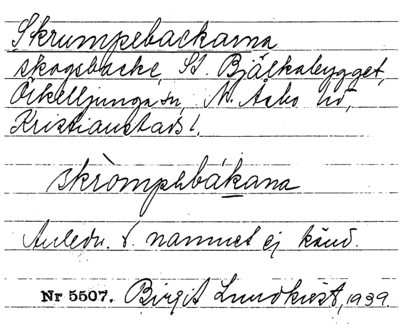 Skrumpebackarna
skogsbacke, St. Bjälkabygget,
Örkelljunga sn, N. Åsbo hd,
Kristianstads l.
skròmphbákana
Anledn. t. namnet ej känd.
Nr 5507. Birgit Lundkvist, 1939.